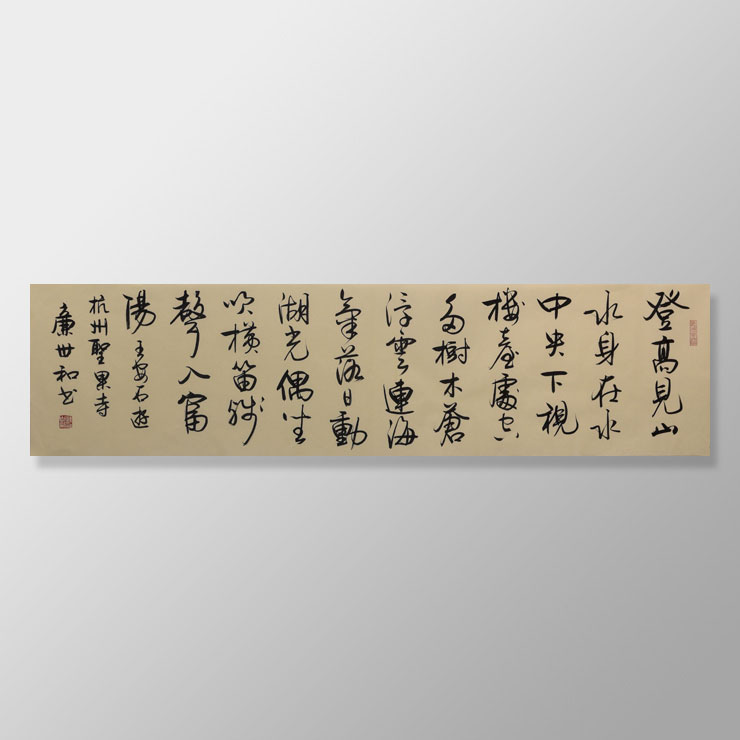 登高見山
水身在水
中央下視
樓臺處空
多樹木蒼
浮雲連海
氣落日動
湖光偶坐
吹橫笛殘
聲入富
陽 王安石遊
杭州聖果寺
廉世和书